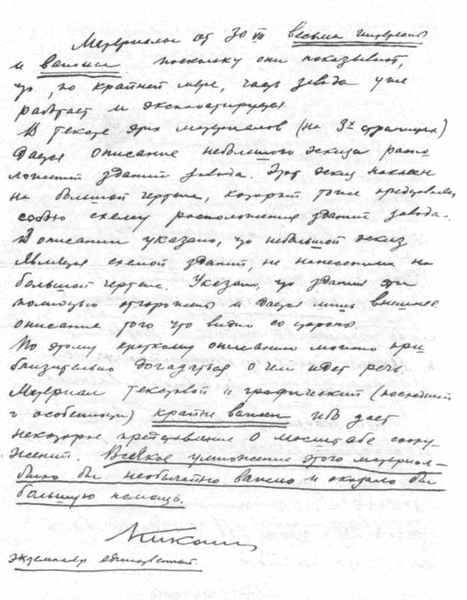 Материалы от 30 VII весьма интересны
и важны поскольку они показывают,
что, по крайней мере, часть завода уже
работает и эксплоатируется
В тексте этих материалов (на 3х страницах)
дается описание небольшого эскиза распо-
ложения зданий завода. Этот эскиз наклеен
на большой чертеж, который тоже представляет
собою схему расположения зданий завода.
В описании указано, что небольшой эскиз
является схемой зданий, не нанесенных на
большой чертеж. Указано, что здания эти
полностью отгорожены и дается лишь внешнее
описание того что видно со стороны.
По этому краткому описанию можно при-
близительно догадаться о чем идет речь.
Материал текстовой и графический (последний
в особенности) крайне важен ибо дает
некоторое представление о масштабе соору-
жений. Всякое уточнение этого материала
было бы необычайно важно и оказало бы
большую помощь.
экземпляр единственный.